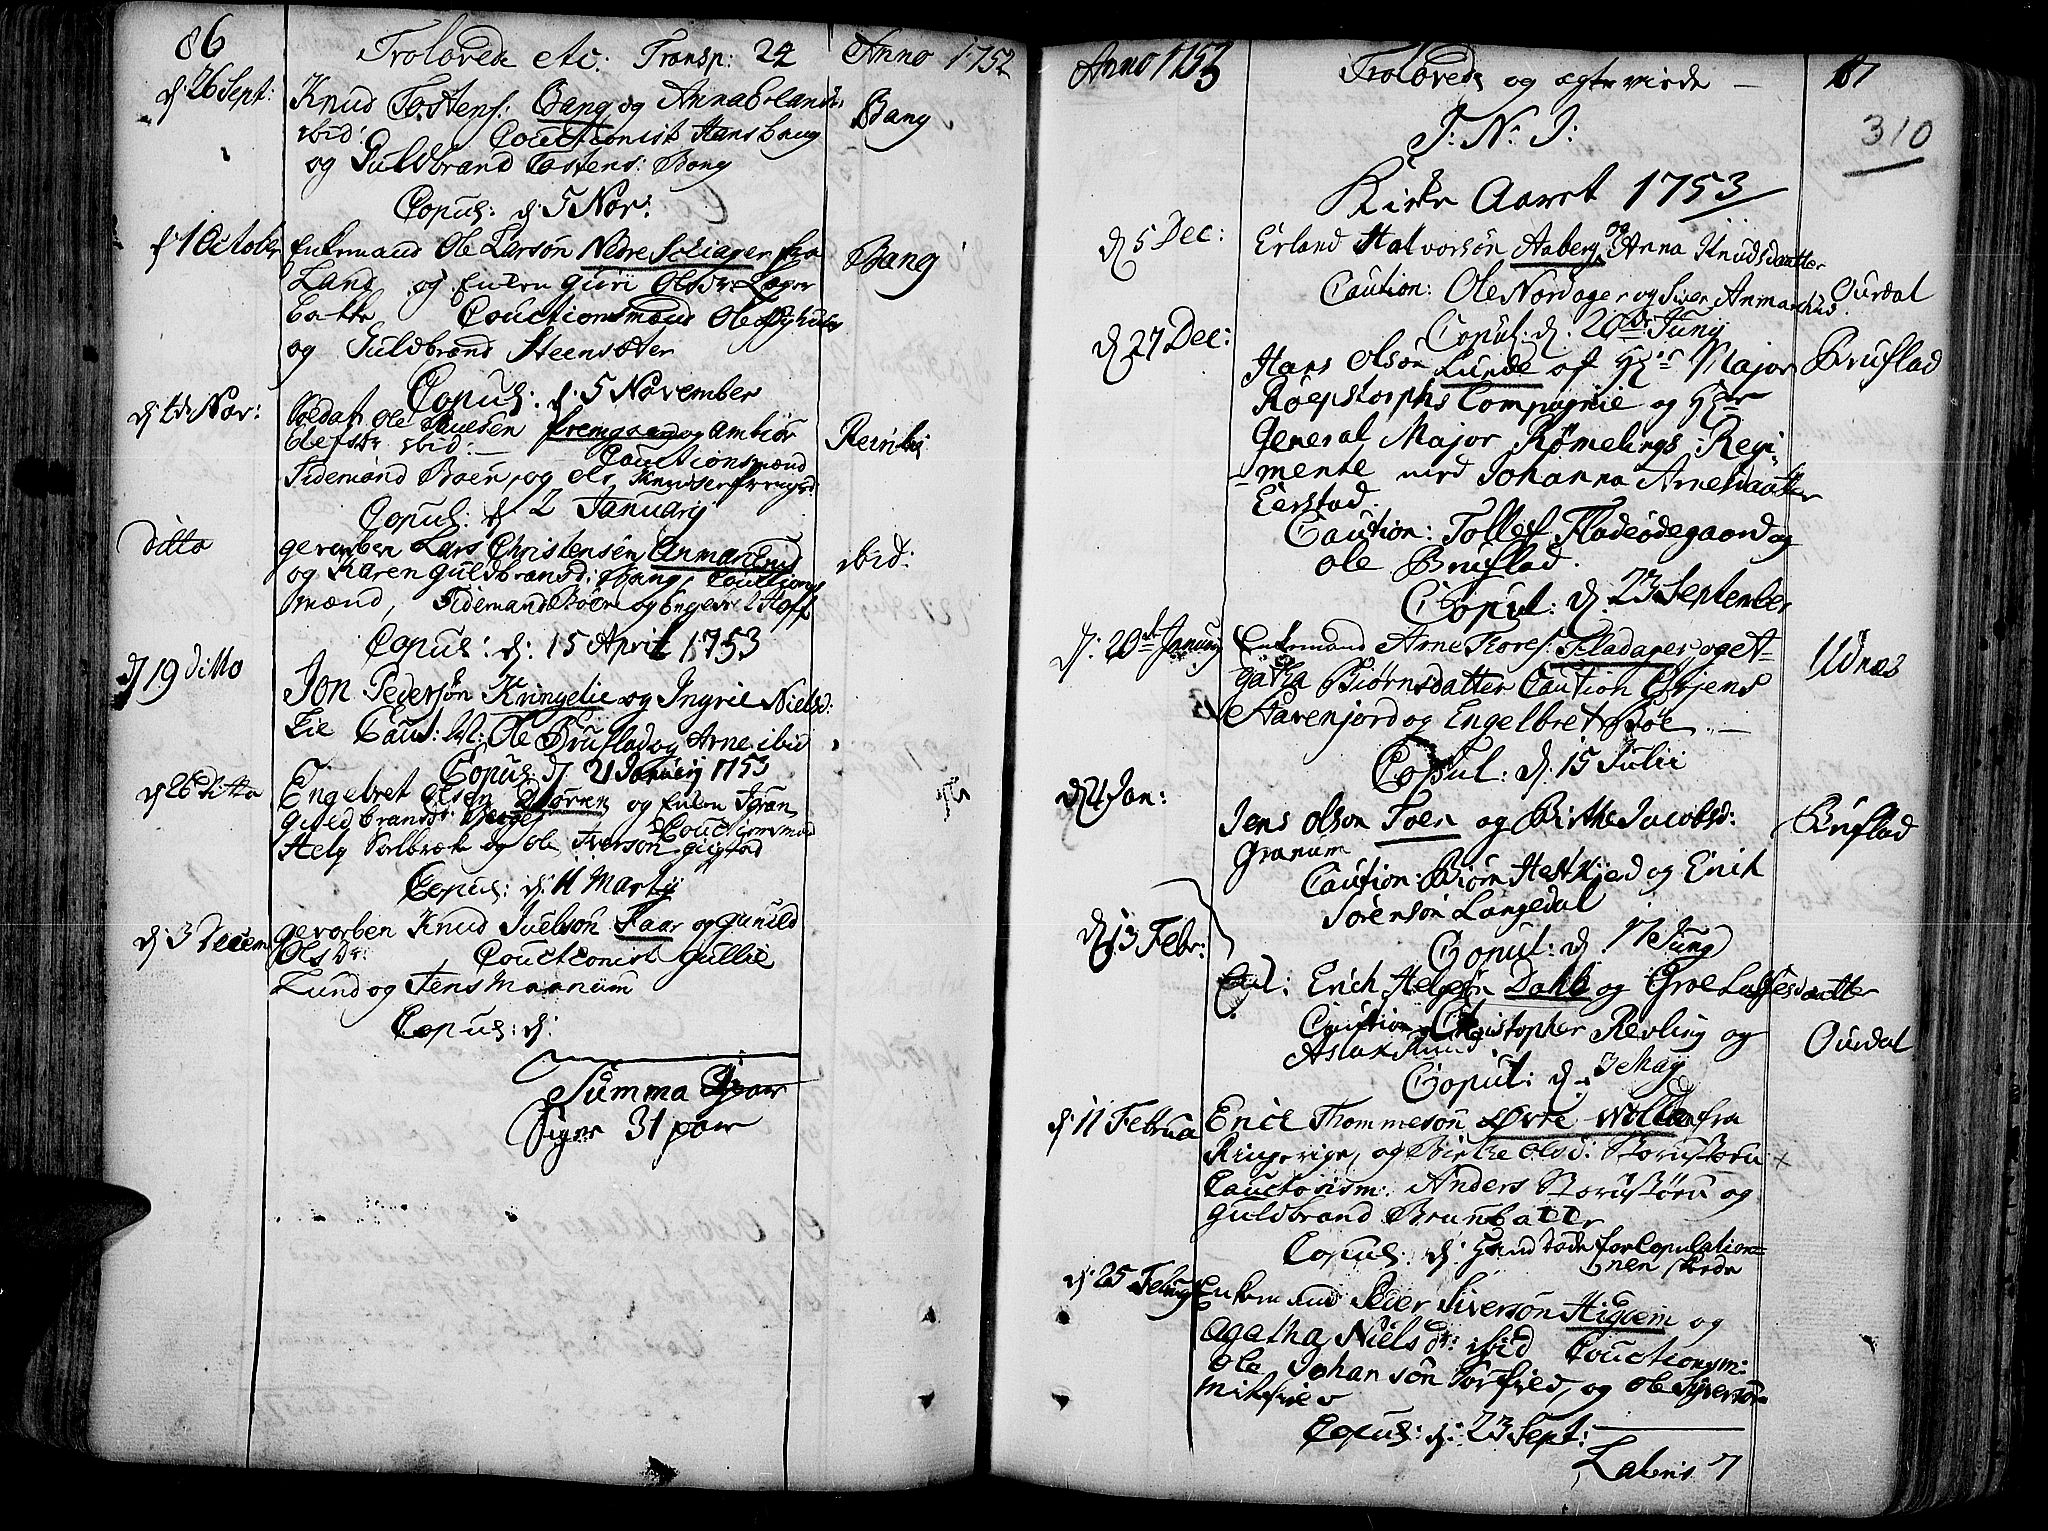 86
Trolovede etc: Transp: 24
Anno 1752
d: 26 Sept:
Knud Tostens: Bang og Anna Erlands:
ibid: Couctionist Hans Baug
og Guldbrand Tostens: Bang
Bang
Copul: d: 5 Nov:
d: 1 October
Enkemand Ole Larsön Nedre Schiager fra
Land og Enken Guri Olsdr: Lager
bakke Couctionsmænd Ole Ryghus
og Guldbrand Steensæter
Bang
Copul: d: 5 November
Nov:
Soldat Ole Knudsen Fremgaard og Ambiör
Olefsdr ibid: Couctionsmænd
Tidemand Böen, og Ole Knudsen
Reinli
Copul: d: 2 January
ditto
gevorben Lars Christensön Anmarkrud
og Karen Guldbransd: Bang, Couctions
mænd, Tidemand Böen og Engebret Hoff
ibid:
Copul: d: 15 April 1753
d 19 ditto
Jon Pedersön Kringelie og Ingrie Nielsd:
Lie Caut: M: Ole Bruflad og Arne ibid
Copul: d 21 January 1753
d 26 ditto
Engebret Olsen og Enken Jöran
Guldbransdr Couctionsmænd
Helg Solbræk og Ole Iversön Gigstad
Copul: d: 11 Martij
d 3 Decem
gevorben Knud Juelsön Faar og Gunild
Olsdr: Couctionist Gullic
Lund og Jens
Copul: d:
Summa
Siger 31 paar
Anno 1753
Trolovede og ægteviede
87
310
I: N: J:
Kirke Aaret 1753
d 5 Dec:
Erland Halvorsön Aaberg og Anna Knudsdaatter
Caution: Ole Nordager og Siver Anmarkrud
Ourdal
Copul: d: 20de Junij
d 27 Dec:
Hans Olsön Lunde af Hr Major
Röepstorphs Compagnie og Hr
General Major Römelings Regi-
mente med Johanna Arnesdaatter
Eerstad.
Bruflad
Caution: Tollef Fladeödegaard og
Ole Bruflad.
Copul: d. 23 September
d: 20de January
Enkemand Arne Toress: Fladager og A-
gatha Biörnsdatter Caution Örjens
Stavenjord og Engelbret Böe
Udnæs
Copul: d. 15 Julii
Jan:
Jens Olsön Foen og Birthe Jacobsd:
Granum
Bruflad
Caution: Biörn Hestkjed og Erich
Sörensön Langedal
Copul: d. 17 Junij
d 13 Febr:
Erich Helgesön Dahle og Groe Lassesdaatter
Caution Christopher Revling og
Aslak Ruud
Ourdal
Copul: d. 3 May
d 11 Februa
Erick Thommesön Övre Wolle fra
Ringerige, og Birthe Olsd: Storustöen
Cauctonism: Anders Storustöen og
Guldbrand Brunbatten
Copul: d: hand döde for Copulation-
nen skede
d: 25 Febru
Enkemand Peder Siversön Higiem og
Agatha Nielsdr: ibid Couctionsm:
Ole Johansön og Ole Syversön
Midslie
Copul: d: 23 Sept:
Lateris 7